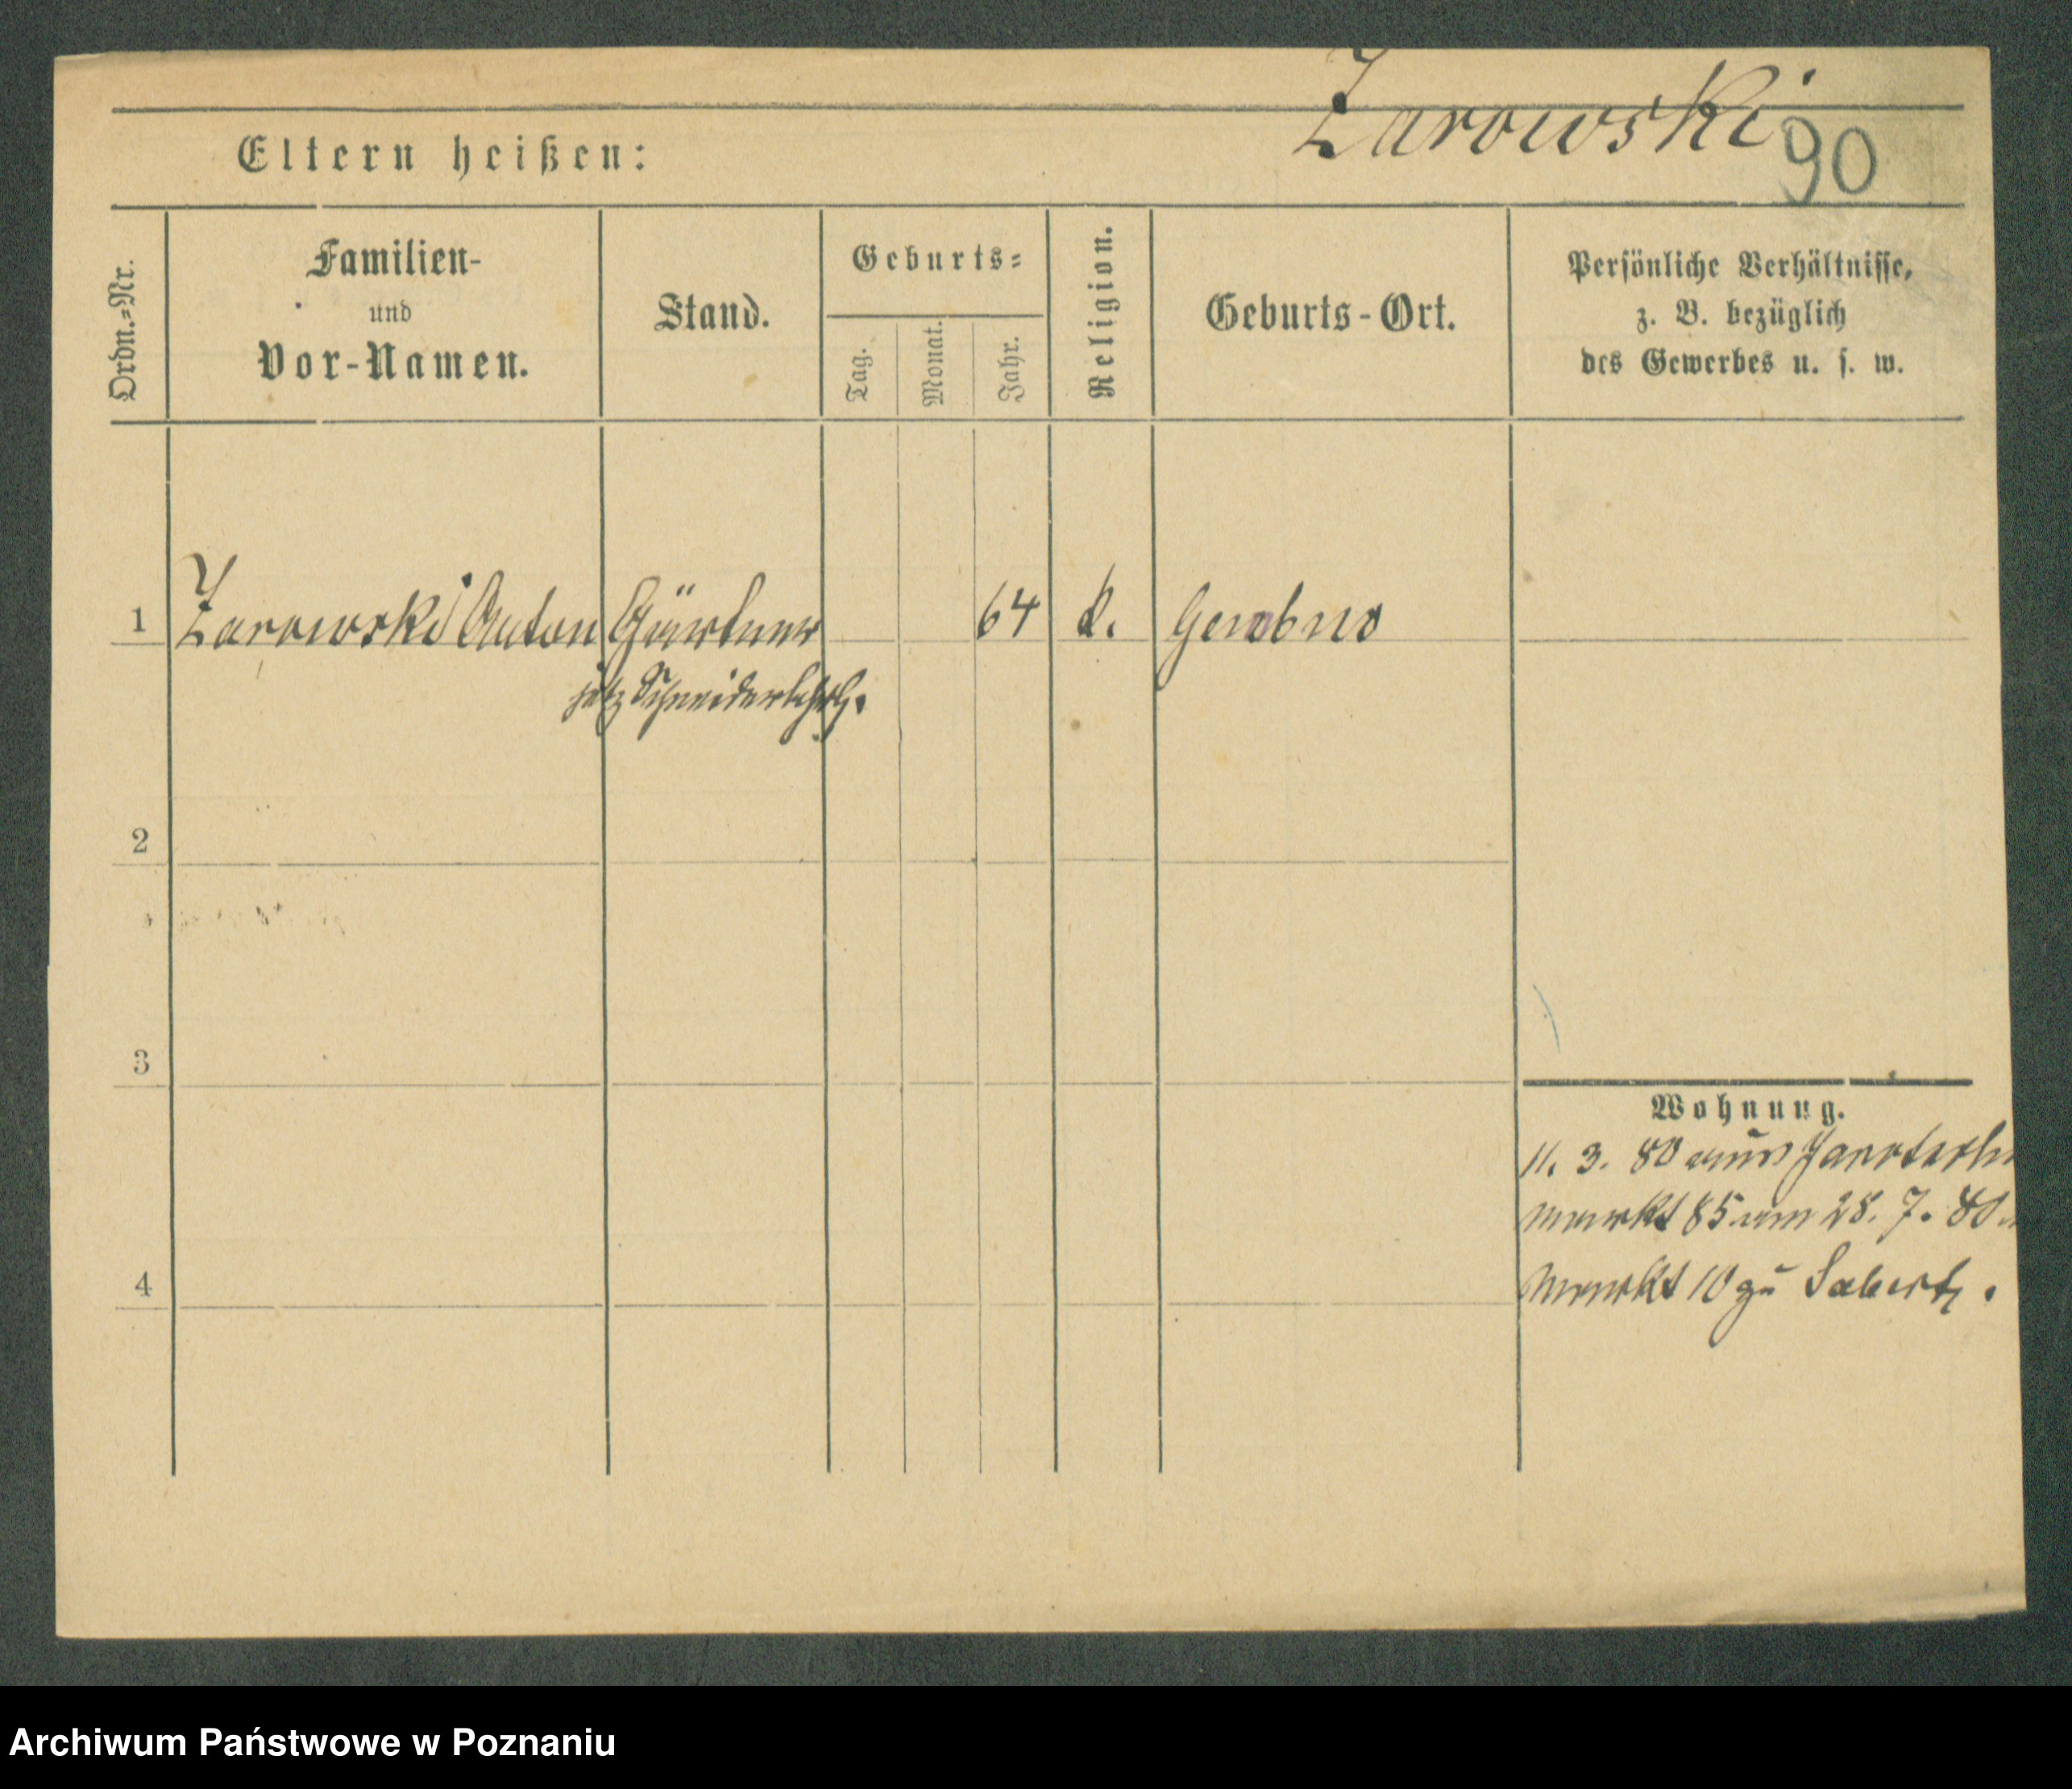 Zarowski
90
Eltern heißen:
Ordn.-Nr.
Familien-
und
Vor-Namen.
Stand.
Geburts-
Tag.
Monat.
Jahr.
Religion.
Geburts-Ort.
Persönliche Verhältnisse,
z. B. bezüglich
des Gewerbes u. s. w.
1 Zarowski Anton Gärtner 64 k.
jetz Schneiderlehrl.
2
3
Wohnung.
11. 3. 80 aus
markt 85 am 28. 7. 80
4
Markt 10 zu
Archiwum Państwowe w Poznaniu